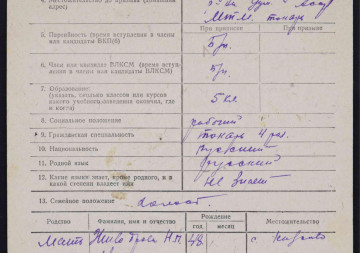 адрес)
МТМ. токарь
При приписке
При призыве
5. Партийность (время вступления в члены или кандидаты ВКП(б)
б/п.
6. Член или кандидат ВЛКСМ (время вступления в члены или кандидаты ВЛКСМ)
б/п.
7. Образование:
(указать, сколько классов или курсов какого учебного заведения окончил, где и когда)
5 кл.
8. Социальное положение
рабочий
9. Гражданская специальность
токарь 4 раз.
10. Национальность
русский
11. Родной язык
русский
12. Какие языки знает, кроме родного, и в какой степени владеет ими
не знает
13. Семейное положение
холост.
Родство
Фамилия, имя и отчество
Рождение
год
месяц
Местожительство
мать
Н.П.